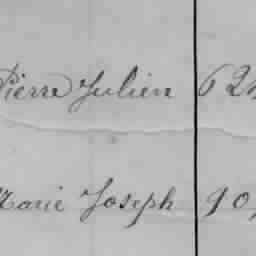 Pierre Julien 624
Marie Joseph 90,